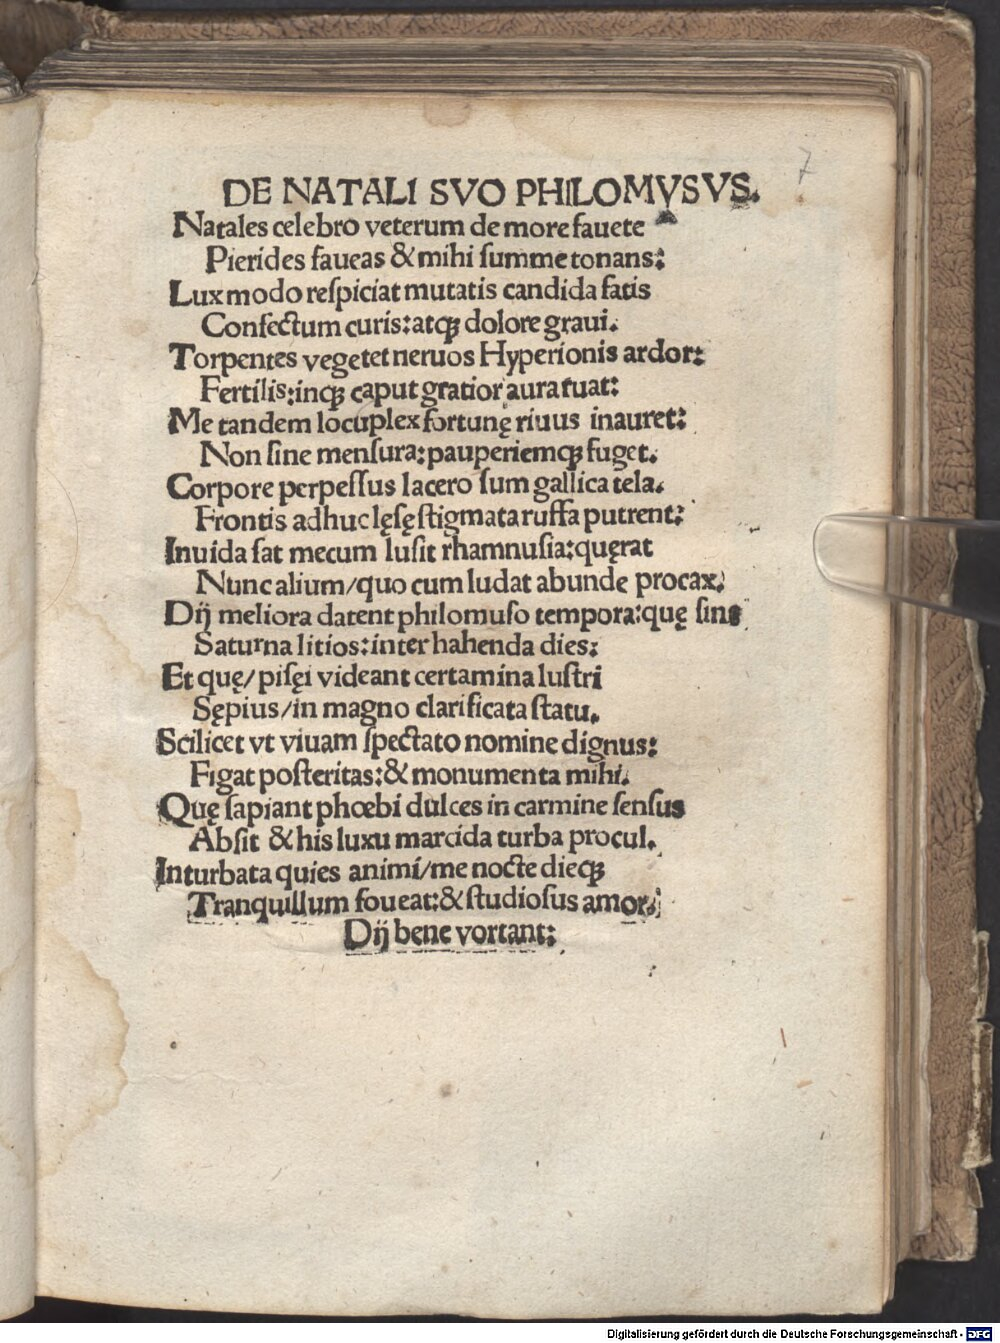 7
DE NATALI SVO PHILOMVSVS.
Natales celebro veterum de more fauete
Pierides faueas & mihi summe tonans:
Lux modo respiciat mutatis candida fatis
Confectum curis: atqꝫ dolore graui.
Torpentes vegetet neruos Hyperionis ardor:
Fertilis: inqꝫ caput gratior aura ruat:
Me tandem locuplex fortunę riuus inauret:
Non sine mensura: pauperiemqꝫ fuget.
Corpore perpessus lacero sum gallica tela.
Frontis adhuc lęsę stigmata russa putrent:
Inuida sat mecum lusit rhamnusia: quęrat
Nunc alium/quo cum ludat abunde procax.
Dij meliora darent philomuso tempora: quę sint
Saturnalitios: inter hahenda dies:
Et quę/pisęi videant certamina lustri
Sępius/in magno clarificata statu.
Scilicet vt viuam spectato nomine dignus:
Figat posteritas: & monumenta mihi.
Quę sapiant phœbi dulces in carmine sensus
Absit & his luxu marcida turba procul.
Inturbata quies animi/me nocte dieqꝫ
Tranquillum foueat: & studiosus amor.
Dij bene vortant:
Digitalisierung gefördert durch die Deutsche Forschungsgemeinschaft - DFG